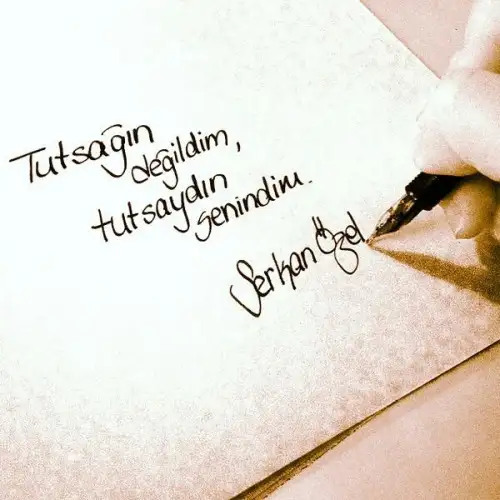 Tutsağın
değildim,
tutsaydın
senindim.
Serkan Özel